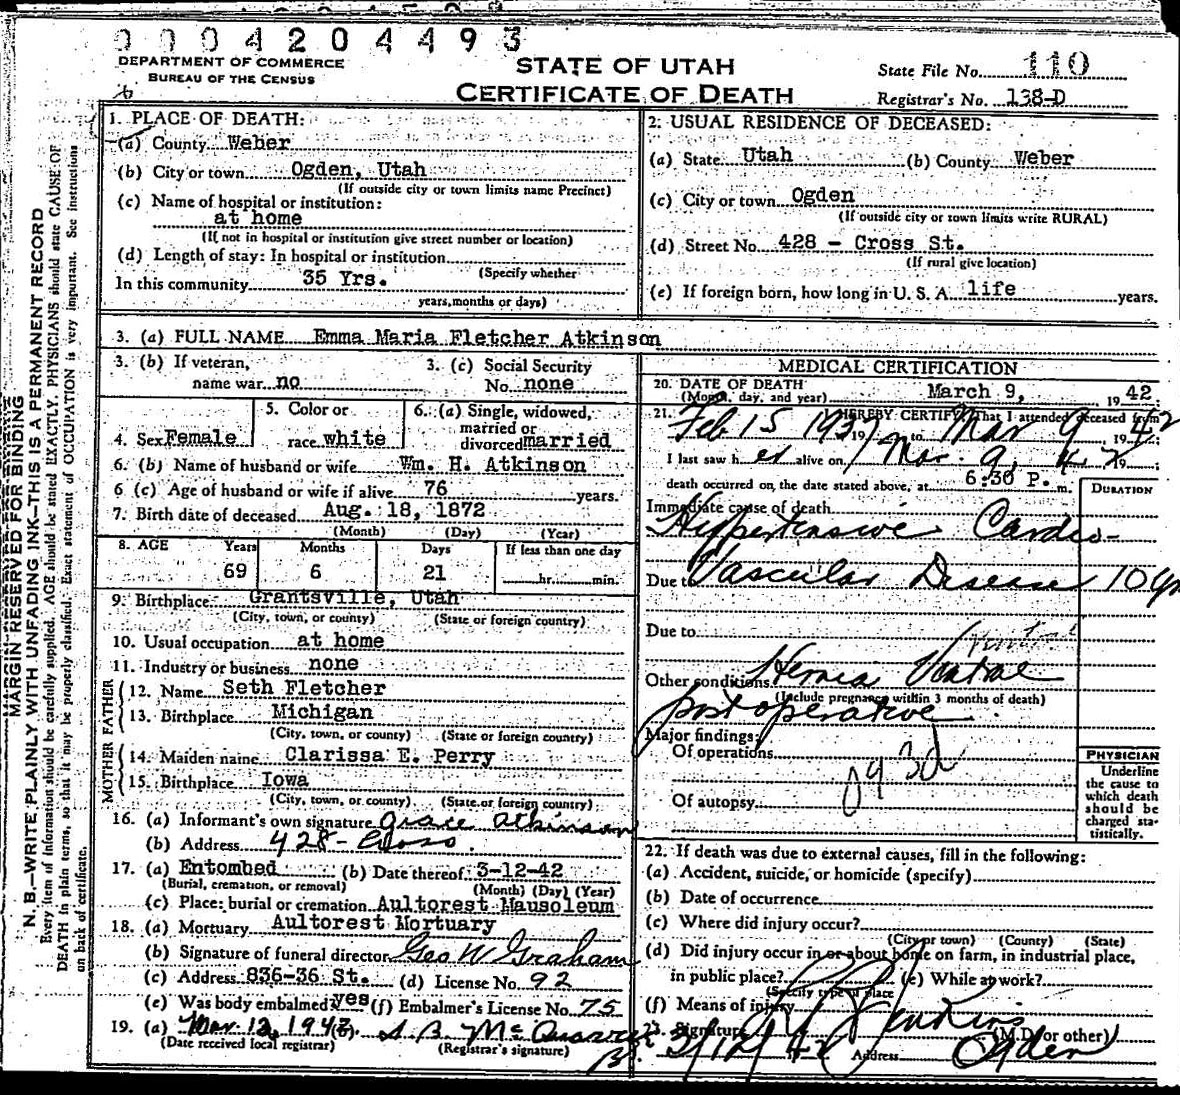 0004204493
DEPARTMENT OF COMMERCE
BUREAU OF THE CENSUS
STATE OF UTAH
CERTIFICATE OF DEATH
State File No. 110
Registrar's No. 138-D
MARGIN RESERVED FOR BINDING
N. B.—WRITE PLAINLY WITH UNFADING INK—THIS IS A PERMANENT RECORD
Every item of information should be carefully supplied. AGE should be stated EXACTLY. PHYSICIANS should state CAUSE OF
DEATH in plain terms, so that it may be properly classified. Exact statement of OCCUPATION is very important. See instructions
on back of certificate.
1. PLACE OF DEATH:
(a) County Weber
(b) City or town Ogden, Utah
(If outside city or town limits name Precinct)
(c) Name of hospital or institution:
at home
(If not in hospital or institution give street number or location)
(d) Length of stay: In hospital or institution
(Specify whether
In this community 35 Yrs.
years, months or days)
2. USUAL RESIDENCE OF DECEASED:
(a) State Utah (b) County Weber
(c) City or town Ogden
(If outside city or town limits write RURAL)
(d) Street No. 428 - Cross St.
(If rural give location)
(e) If foreign born, how long in U. S. A. life years.
3. (a) FULL NAME Emma Maria Fletcher Atkinson
3. (b) If veteran,
name war no
3. (c) Social Security
No. none
4. Sex Female
5. Color or
race white
6. (a) Single, widowed,
married or
divorced married
6. (b) Name of husband or wife Wm. H. Atkinson
6 (c) Age of husband or wife if alive 76 years.
7. Birth date of deceased Aug. 18, 1872
(Month) (Day) (Year)
8. AGE Years Months Days If less than one day
69 6 21 hr. min.
9. Birthplace Grantsville, Utah
(City, town, or county) (State or foreign country)
10. Usual occupation at home
11. Industry or business none
FATHER
12. Name Seth Fletcher
13. Birthplace Michigan
(City, town, or county) (State or foreign country)
MOTHER
14. Maiden name Clarissa E. Perry
15. Birthplace Iowa
(City, town, or county) (State or foreign country)
16. (a) Informant's own signature Grace Atkinson
(b) Address 428 - Cross.
17. (a) Entombed (b) Date thereof 3-12-42
(Burial, cremation, or removal) (Month) (Day) (Year)
(c) Place: burial or cremation Aultorest Mausoleum
18. (a) Mortuary Aultorest Mortuary
(b) Signature of funeral director Geo W Graham
(c) Address 836-36 St. (d) License No. 92
(e) Was body embalmed yes (f) Embalmer's License No. 75
19. (a) Mar. 12, 1942.
(Date received local registrar) (Registrar's signature)
MEDICAL CERTIFICATION
20. DATE OF DEATH
(Month, day, and year) March 9, 1942
21. I HEREBY CERTIFY That I attended deceased from
Feb 15 1937 19 to Mar 9, 1942:
I last saw her alive on Mar. 9, 42 19
death occurred on the date stated above, at 6:30 P. m.
DURATION
Immediate cause of death
Hypertensive Cardio-
Due to Vascular Disease 10 yrs
Due to
Other conditions Hernia Ventral
(Include pregnancy within 3 months of death)
post operative.
Major findings:
Of operations
Of autopsy
PHYSICIAN
Underline
the cause to
which death
should be
charged sta-
tistically.
22. If death was due to external causes, fill in the following:
(a) Accident, suicide, or homicide (specify)
(b) Date of occurrence
(c) Where did injury occur?
(City or town) (County) (State)
(d) Did injury occur in or about home on farm, in industrial place,
in public place? (e) While at work?
(Specify type of place
(f) Means of injury
23. Signature Jenkins (M.D. or other)
3/12/42 Address Ogden